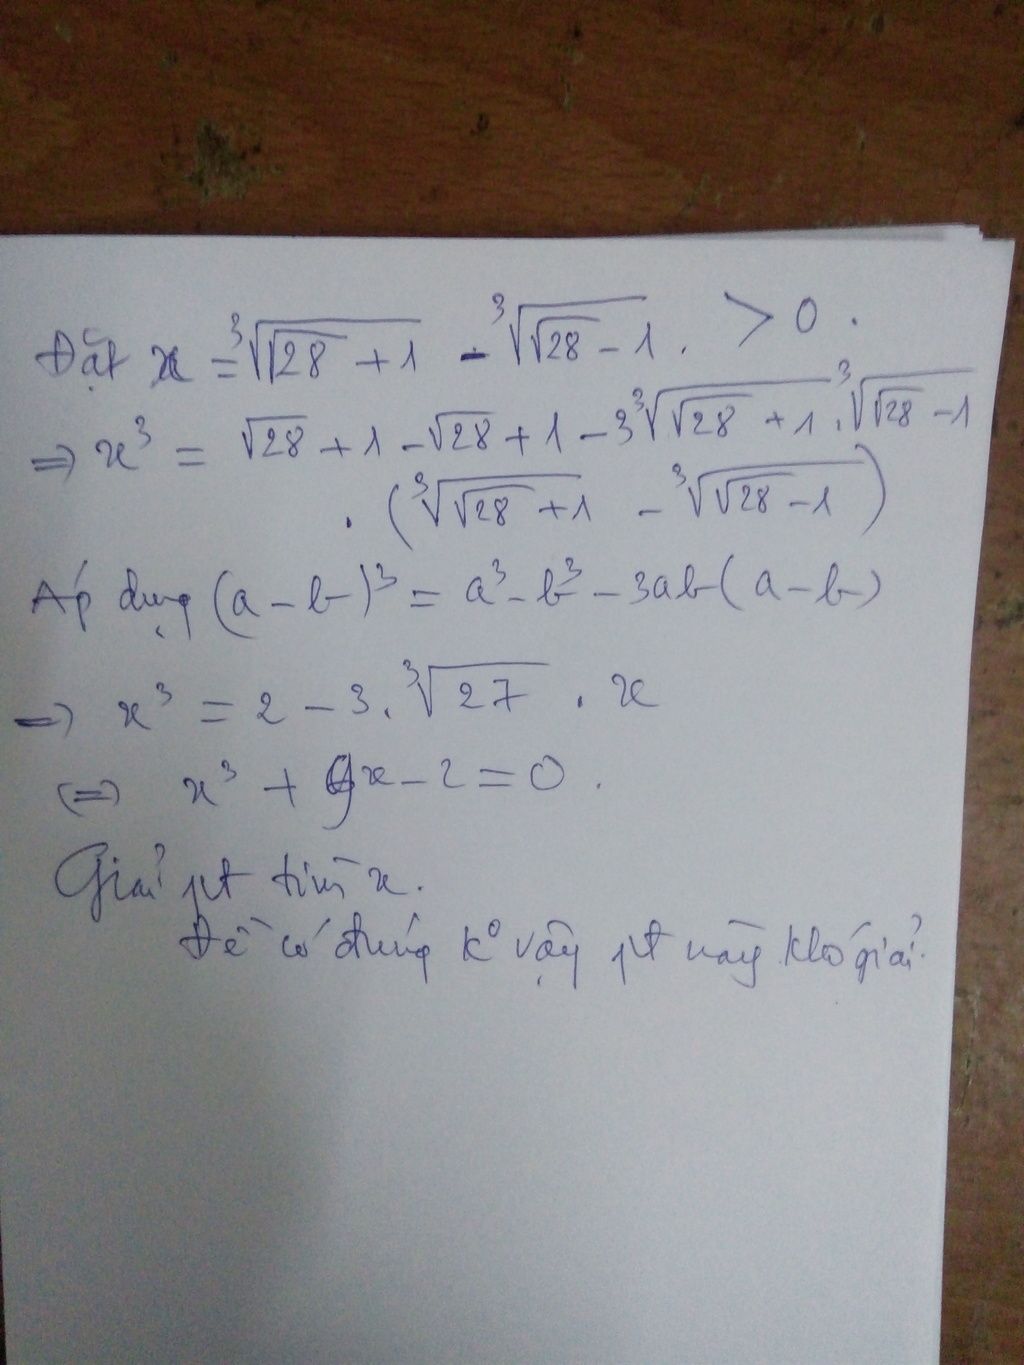 Đặt x = ∛(√28 + 1) - ∛(√28 - 1) . > 0 .
⇒ x³ = √28 + 1 - √28 + 1 - 3∛(√28 + 1) . ∛(√28 - 1)
. (∛(√28 + 1) - ∛(√28 - 1))
Áp dụng (a - b)³ = a³ - b³ - 3ab(a - b)
⇒ x³ = 2 - 3 . ∛27 . x
⇔ x³ + 9x - 2 = 0 .
Giải pt tìm x.
Đề có đúng k⁰ vậy pt này khó giải.